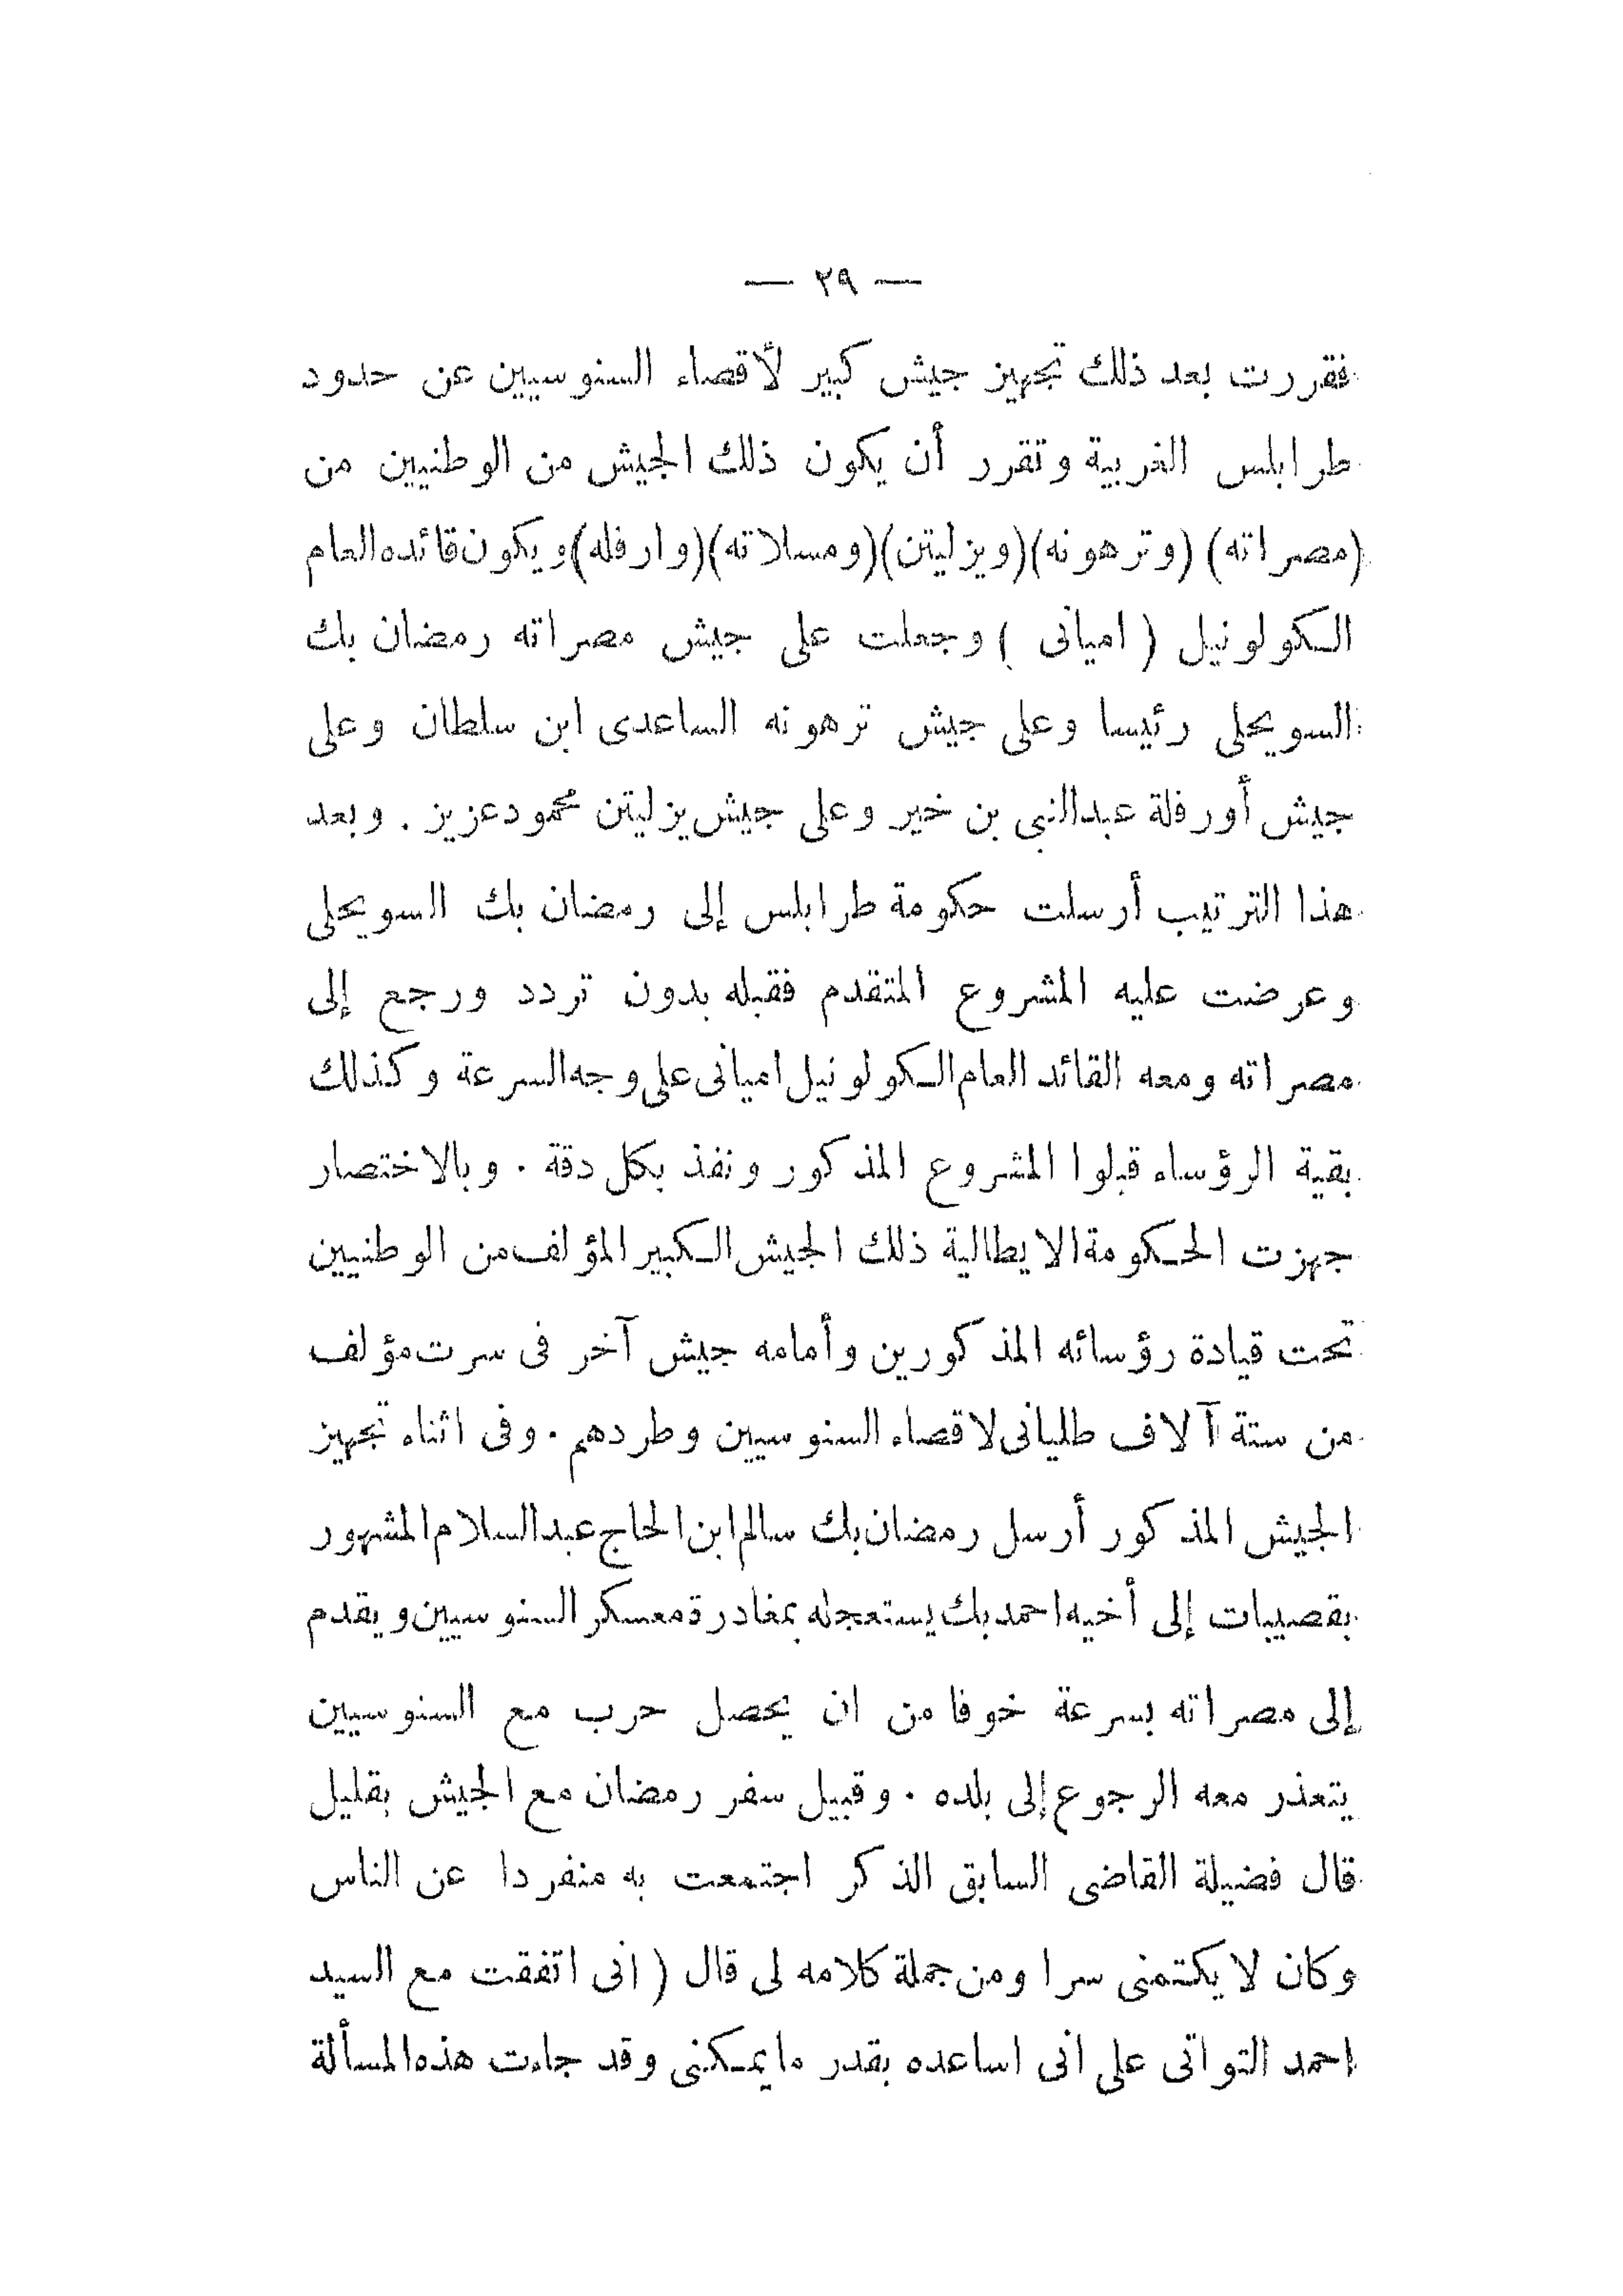 — ٢٩ —
فقررت بعد ذلك تجهيز جيش كبير لأقصاء السنوسيين عن حدود
طرابلس الغربية وتقرر أن يكون ذلك الجيش من الوطنيين من
(مصراته) (وترهونه)(ويزليتن)(ومسلاته)(وارفله)ويكون قائده العام
الكولونيل ( اميانى ) وجعلت على جيش مصراته رمضان بك
السويحلى رئيسا وعلى جيش ترهونه الساعدى ابن سلطان وعلى
جيش أورفلة عبدالنبي بن خير وعلى جيش يزليتن محمود عزيز . وبعد
هذا الترتيب أرسلت حكومة طرابلس إلى رمضان بك السويحلى
وعرضت عليه المشروع المتقدم فقبله بدون تردد ورجع إلى
مصراته ومعه القائد العام الكولونيل اميانى على وجه السرعة وكذلك
بقية الرؤساء قبلوا المشروع المذكور ونفذ بكل دقة . وبالاختصار
جهزت الحكومة الايطالية ذلك الجيش الكبير المؤلف من الوطنيين
تحت قيادة رؤسائه المذكورين وأمامه جيش آخر فى سرت مؤلف
من ستة آلاف طليانى لاقصاء السنوسيين وطردهم . وفى اثناء تجهيز
الجيش المذكور أرسل رمضان بك سالم ابن الحاج عبد السلام المشهور
بقصيبات إلى أخيه احمد بك يستعجله بمغادرة معسكر السنوسيين ويقدم
إلى مصراته بسرعة خوفا من ان يحصل حرب مع السنوسيين
يتعذر معه الرجوع إلى بلده . وقبيل سفر رمضان مع الجيش بقليل
قال فضيلة القاضى السابق الذكر اجتمعت به منفردا عن الناس
وكان لا يكتمنى سرا ومن جملة كلامه لى قال ( انى اتفقت مع السيد
احمد التواتى على انى اساعده بقدر ما يمكنى وقد جاءت هذه المسألة